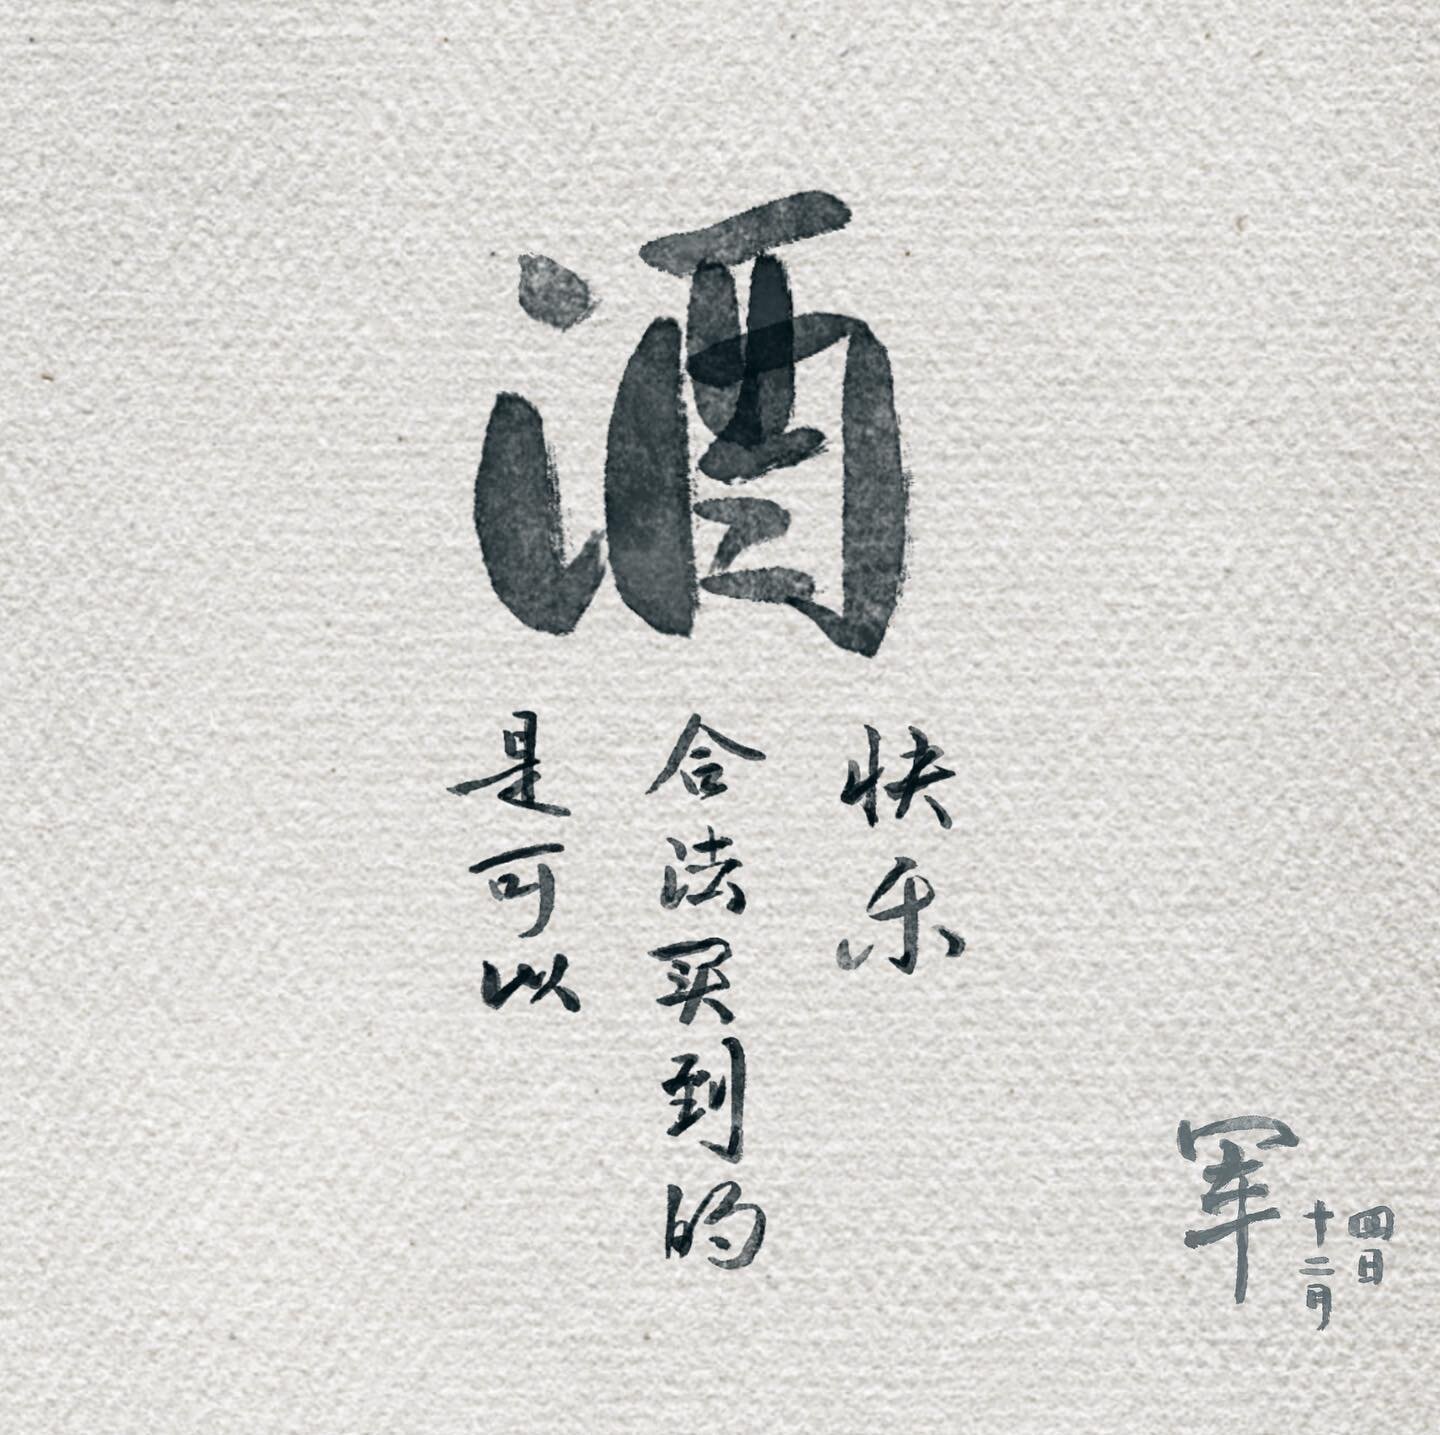 酒
是可以
合法买到的
快乐
军
十二月
四日